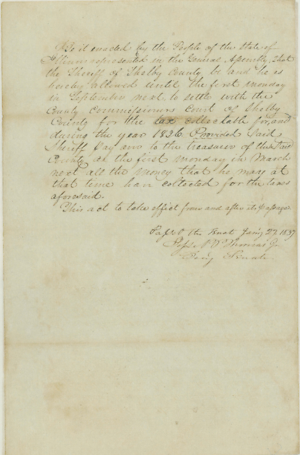 Be it enacted by the People of the State of
Illinois represented in the General Assembly, that
the Sheriff of Shelby County be and he is
hereby allowed until the first monday
in September next to settle with the
County Commissioners Court of Shelby
County for the tax collectable for and
during the year 1836 Provided Said
Sheriff pay over to the treasurer of the Said
County on the first monday in March
next all the money that he may at
that time have collected for the taxes
aforesaid.
This act to take effect from and after its passage
Passed the Senate Jany 23. 1837